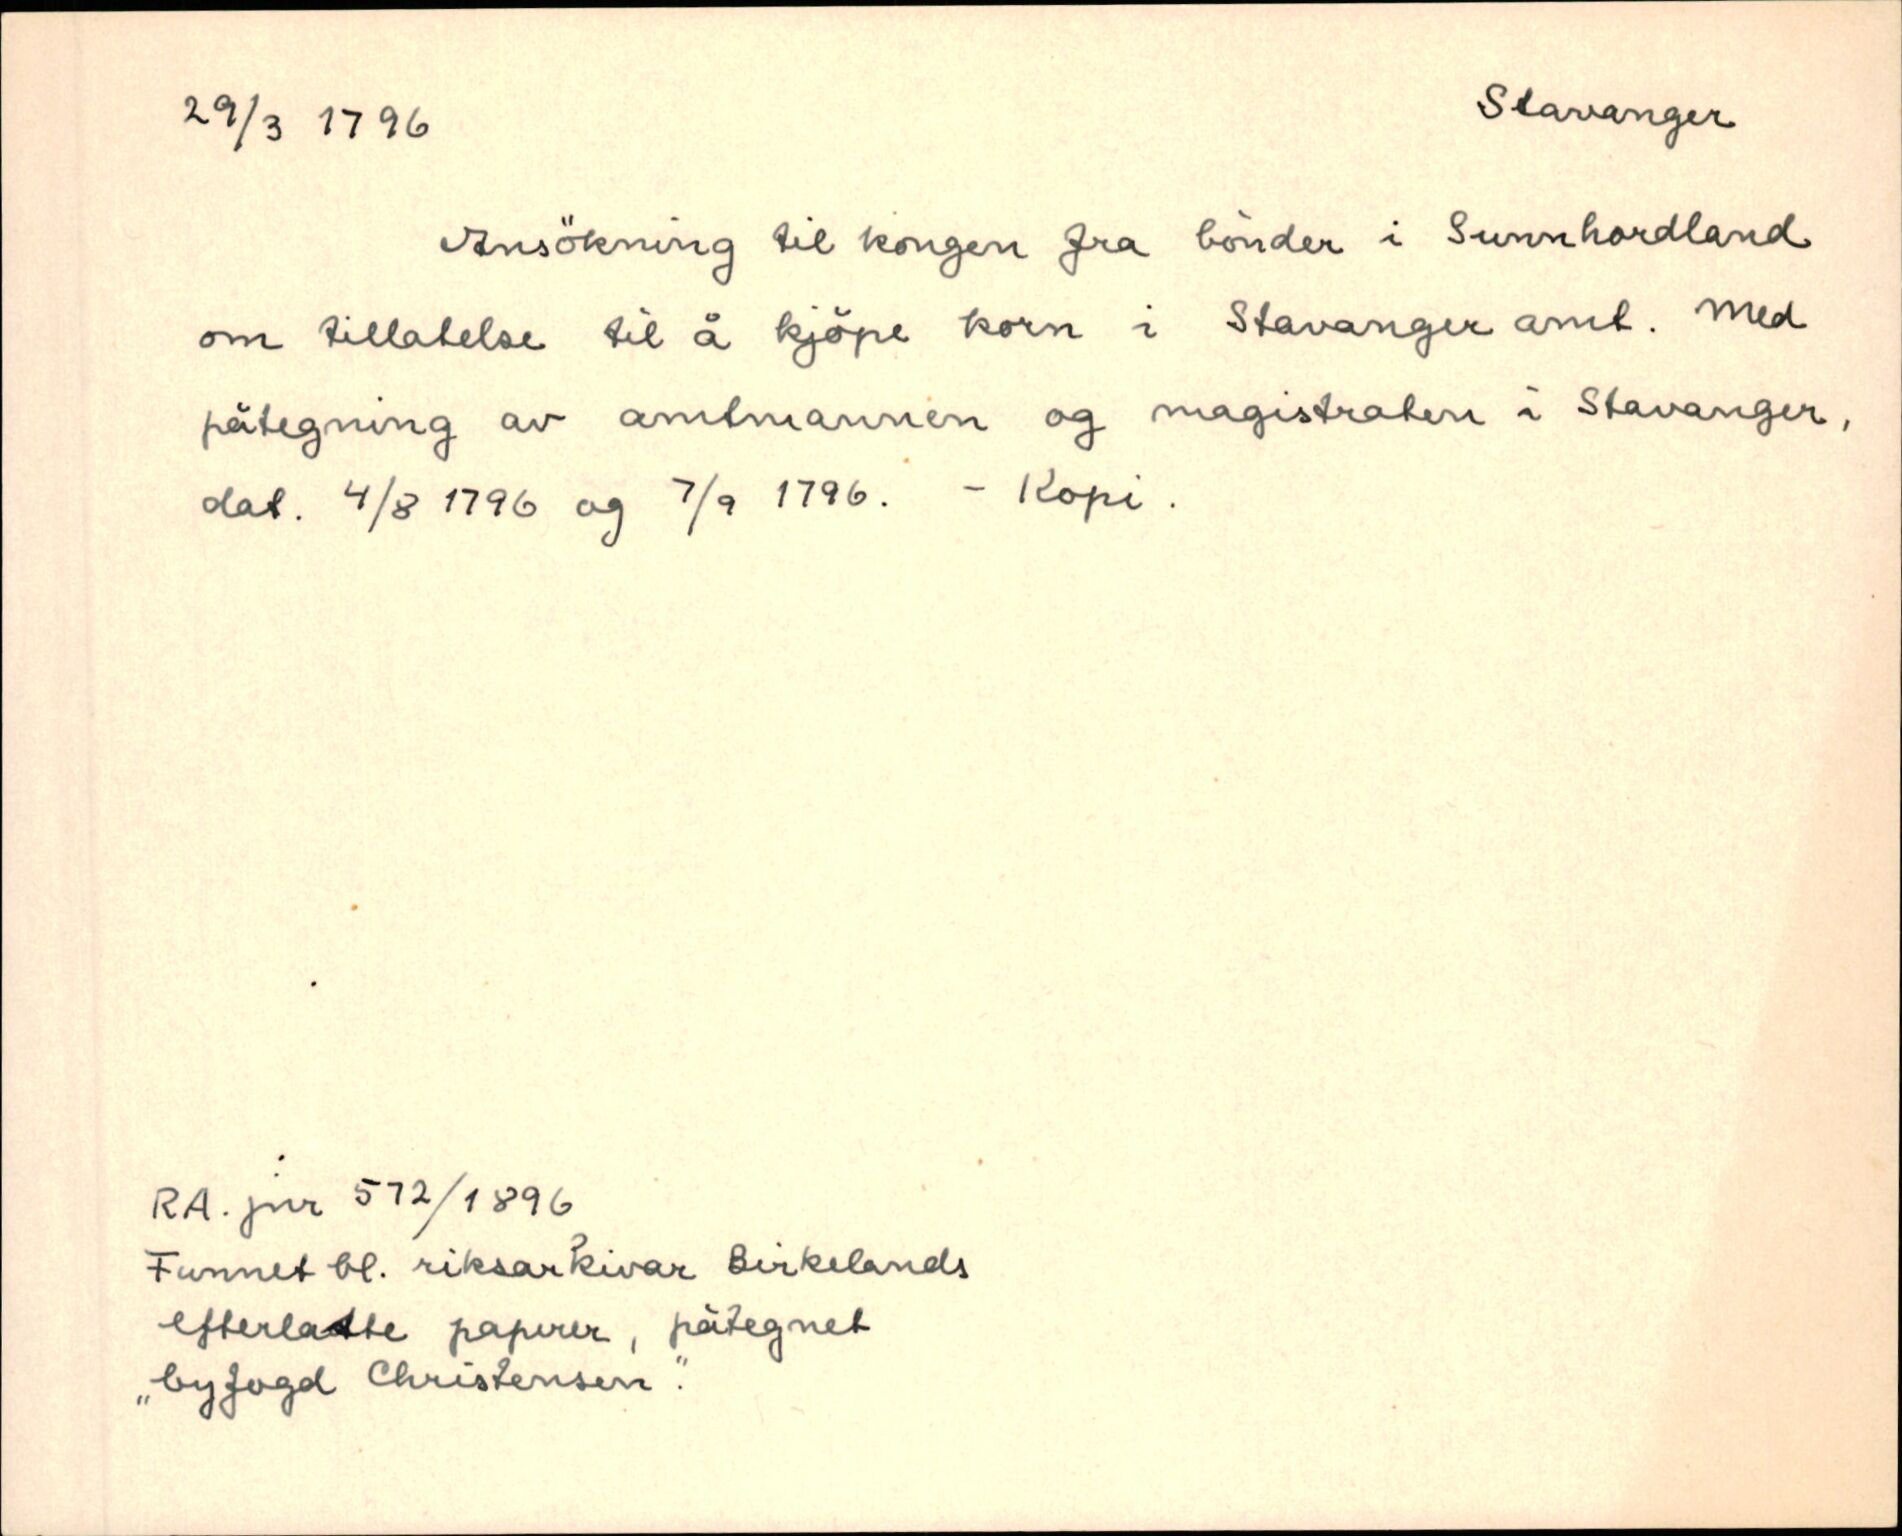 29/3 1796
Stavanger
Ansökning til kongen fra bönder i Sunnhordland
om tillatelse til å kjöpe korn i Stavanger amt. Med
påtegning av amtmannen og magistraten i Stavanger,
dat. 4/8 1796 og 7/9 1796. - Kopi.
RA. jnr 572/1896
Funnet bl. riksarkivar Birkelands
efterlatte papirer, påtegnet
„byfogd Christensen".